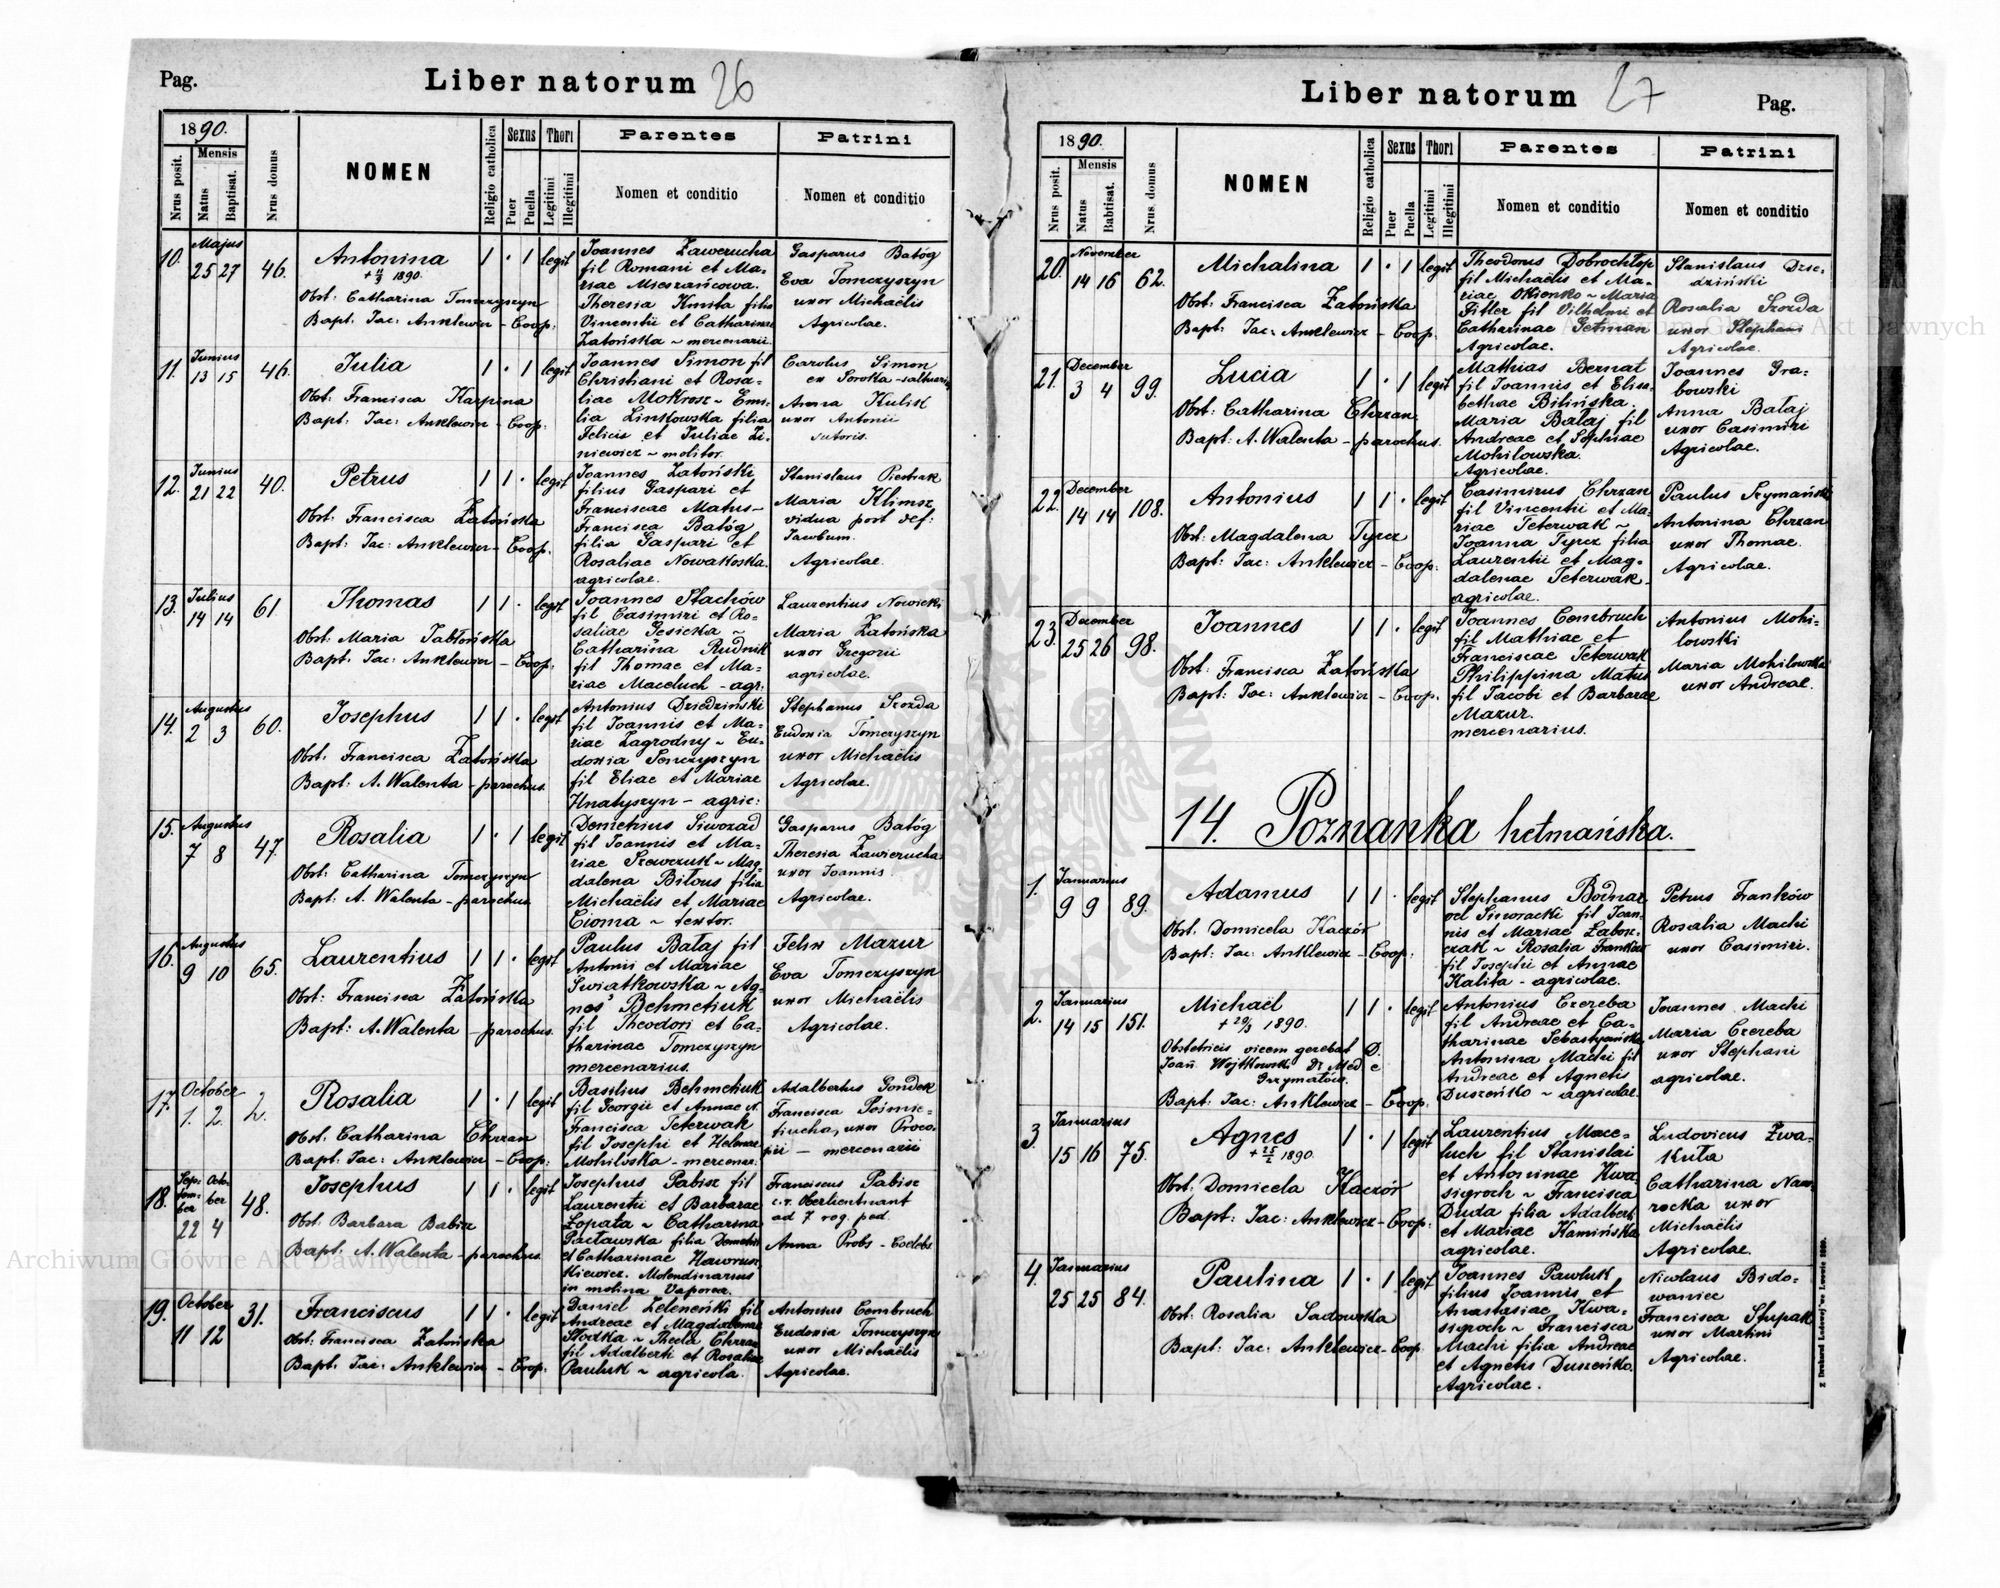 Pag.
Liber natorum 26
1890.
Nrus posit.
Mensis
Natus
Baptisat.
Nrus domus
NOMEN
Religio catholica
Sexus
Puer
Puella
Thori
Legitimi
Illegitimi
Parentes
Nomen et conditio
Patrini
Nomen et conditio
10. Majus 25 27 46. Antonina 1 · 1 legit
1890.
Obst: Catharina Tomczyszyn
Bapt: Jac: Anklewicz - Coop:
Joannes Zawerucha
fil Romani et Ma-
riae Mieszańcowa.
Theresia Kmita filia
Vincentii et Catharinae
Zatońska ~ mercenarii.
Gasparus Batóg
Eva Tomczyszyn
uxor Michaëlis
Agricolae.
11. Junius 13 15 46. Julia 1 · 1 legit
Obst: Francisca Karpina
Bapt: Jac: Anklewicz - Coop:
Joannes Simon fil
Christiani et Rosa-
liae Mokrosz ~ Emi-
lia Linkowska filia
Felicis et Juliae Zi-
niewicz ~ molitor.
Carolus Simon
ex Soroka - saltuarius
Anna Kulik
uxor Antonii
sutoris.
12. Junius 21 22 40. Petrus 1 1 · legit
Obst: Francisca Zatońska
Bapt: Jac: Anklewicz - Coop.
Joannes Zatoński
filius Gaspari et
Franciscae Matus ~
Francisca Batóg
filia Gaspari et
Rosaliae Nowakoska.
agricolae.
Stanislaus Pietrak
Maria Klimsz
vidua post def:
Jacobum.
Agricolae.
13. Julius 14 14 61. Thomas 1 1 · legit
Obst: Maria Jabłońska
Bapt: Jac: Anklewicz - Coop:
Joannes Stachów
fil Casimiri et Ro-
saliae Jesicka ~
Catharina Rudnik
fil Thomae et Ma-
riae Maceluch - agr:
Laurentius Nowicki
Maria Zatońska
uxor Gregorii
agricolae.
14. Augustus 2 3 60. Josephus 1 1 · legit
Obst: Francisca Zatońska
Bapt: A. Walenta - parochus.
Antonius Dziedziński
fil Joannis et Ma-
riae Zagrodny ~ Eu-
doxia Senczyszyn
fil Eliae et Mariae
Hnatyszyn - agric:
Stephanus Szozda
Eudoxia Tomczyszyn
uxor Michaëlis
Agricolae.
15. Augustus 7 8 47. Rosalia 1 · 1 legit
Obst: Catharina Tomczyszyn
Bapt: A. Walenta - parochus.
Demetrius Siworad
fil Joannis et Ma-
riae Szewczuk ~ Mag-
dalena Biłous filia
Michaëlis et Mariae
Cioma ~ textor.
Gasparus Batóg
Theresia Zawierucha
uxor Joannis
Agricolae.
16. Augustus 9 10 65. Laurentius 1 1 · legit
Obst: Francisca Zatońska
Bapt: A. Walenta - parochus.
Paulus Bałaj fil
Antonii et Mariae
Swiatkowska ~ Ag-
nes Behmetiuk
fil Theodori et Ca-
tharinae Tomczyszyn
mercenarius.
Felix Mazur
Eva Tomczyszyn
uxor Michaëlis
Agricolae.
17. October 1. 2. 2. Rosalia 1 · 1 legit
Obst: Catharina Chrzan
Bapt: Jac: Anklewicz - Coop:
Basilius Behmetiuk
fil Georgii et Annae N.
Francisca Teterwak
fil Josephi et Helenae
Mohiloska - mercenar:
Adalbertus Gondek
Francisca
uxor Proco-
pii - mercenarii
18. Septem-
ber October 22 4 48. Josephus 1 1 · legit
Obst: Barbara Babin
Bapt: A. Walenta - parochus
Josephus Pabisz fil
Laurentii et Barbarae
Łopata ~ Catharina
Pacławska filia Demetrii
et Catharinae Hawrusz-
kiewicz. Molendinarius
in molina Vaporea.
Franciscus Pabisz
c.r. Oberlieutnant
ad 7 reg. ped
Anna Probs - Coelebs
19. October 11 12 31. Franciscus 1 1 · legit
Obst: Francisca Zatońska
Bapt: Jac: Anklewicz - Coop:
Daniel Zeleneński fil
Andreae et Magdalenae
Słodka ~ Thecla Chrzan
fil Adalberti et Rosaliae
Pauluk ~ agricola.
Antonius Cembruch
Eudoxia Tomczyszyn
uxor Michaëlis
Agricolae.
Liber natorum 27
Pag.
1890.
Nrus posit.
Mensis
Natus
Babtisat.
Nrus domus
NOMEN
Religio catholica
Sexus
Puer
Puella
Thori
Legitimi
Illegitimi
Parentes
Nomen et conditio
Patrini
Nomen et conditio
20. November 14 16 62. Michalina 1 · 1 legit
Obst: Francisca Zatońska
Bapt: Jac: Anklewicz - Coop.
Theodorus Dobrochłop
fil Michaëlis et Ma-
riae Okienko ~ Maria
Fitler fil Vilhelmi et
Catharinae Getman
Agricolae.
Stanislaus Dzie-
dziński
Rosalia Szozda
uxor Stephani
Agricolae.
21. December 3 4 99. Lucia 1 · 1 legit
Obst: Catharina Chrzan
Bapt: A. Walenta - parochus.
Mathias Bernat
fil Joannis et Elisa-
bethae Bilińska.
Maria Bałaj fil
Andreae et Sophiae
Mohilowska.
Agricolae.
Joannes Gra-
bowski
Anna Bałaj
uxor Casimiri
Agricolae.
22. December 14 14 108. Antonius 1 1 · legit
Obst: Magdalena Tyrcz
Bapt: Jac: Anklewicz - Coop:
Casimirus Chrzan
fil Vincentii et Ma-
riae Teterwak ~
Joanna Tyrcz filia
Laurentii et Mag-
dalenae Teterwak.
agricolae.
Paulus Szymański
Antonina Chrzan
uxor Thomae.
Agricolae.
23. December 25 26 98. Joannes 1 1 · legit
Obst: Francisca Zatońska
Bapt: Jac: Anklewicz - Coop.
Joannes Cembruch
fil Mathiae et
Franciscae Teterwak
Philippina Matus
fil Jacobi et Barbarae
Mazur.
mercenarius.
Antonius Mohi-
lowski
Maria Mohilowska
uxor Andreae.
14. Poznanka hetmańska.
1. Januarius 9 9 89. Adamus 1 1 · legit
Obst: Domicela Kaczór
Bapt: Jac: Anklewicz - Coop:
Stephanus Bodnar
vel Sworacki fil Joan-
nis et Mariae Łabor-
czak ~ Rosalia Franków
fil Josephi et Annae
Kalita - agricolae.
Petrus Franków
Rosalia Machi
uxor Casimiri.
2. Januarius 14 15 151. Michaël 1 1 · legit
+ 29/3 1890.
Obstetricis vicem gerebat D.
Joan Wojtkowski Dr Med
Grzymałów.
Bapt: Jac: Anklewicz - Coop:
Antonius Czereba
fil Andreae et Ca-
tharinae Sebastyańska
Antonina Machi fil
Andreae et Agnetis
Duszeńko ~ agricolae.
Joannes Machi
Maria Czereba
uxor Stephani
agricolae.
3 Januarius 15 16 75. Agnes 1 · 1 legit
1890.
Obst: Domicela Kaczór
Bapt: Jac: Anklewicz - Coop:
Laurentius Mace-
luch fil Stanislai
et Antoninae Kwa-
sigroch ~ Francisca
Duda filia Adalberti
et Mariae Kamińska
agricolae.
Ludovicus Zwa-
kuła
Catharina Naw-
rocka uxor
Michaëlis
Agricolae.
4. Januarius 25 25 84. Paulina 1 · 1 legit
Obst: Rosalia Sadowska
Bapt: Jac: Anklewicz - Coop
Joannes Pawluk
filius Joannis et
Anastasiae Kwa-
sigroch ~ Francisca
Machi filia Andreae
et Agnetis Duszeńko.
Agricolae.
Nicolaus Bido-
waniec
Francisca Stupak
uxor Martini
Agricolae.
Z Drukarni Ludowej we Lwowie 1890.
Archiwum Główne Akt Dawnych
Archiwum Główne Akt Dawnych